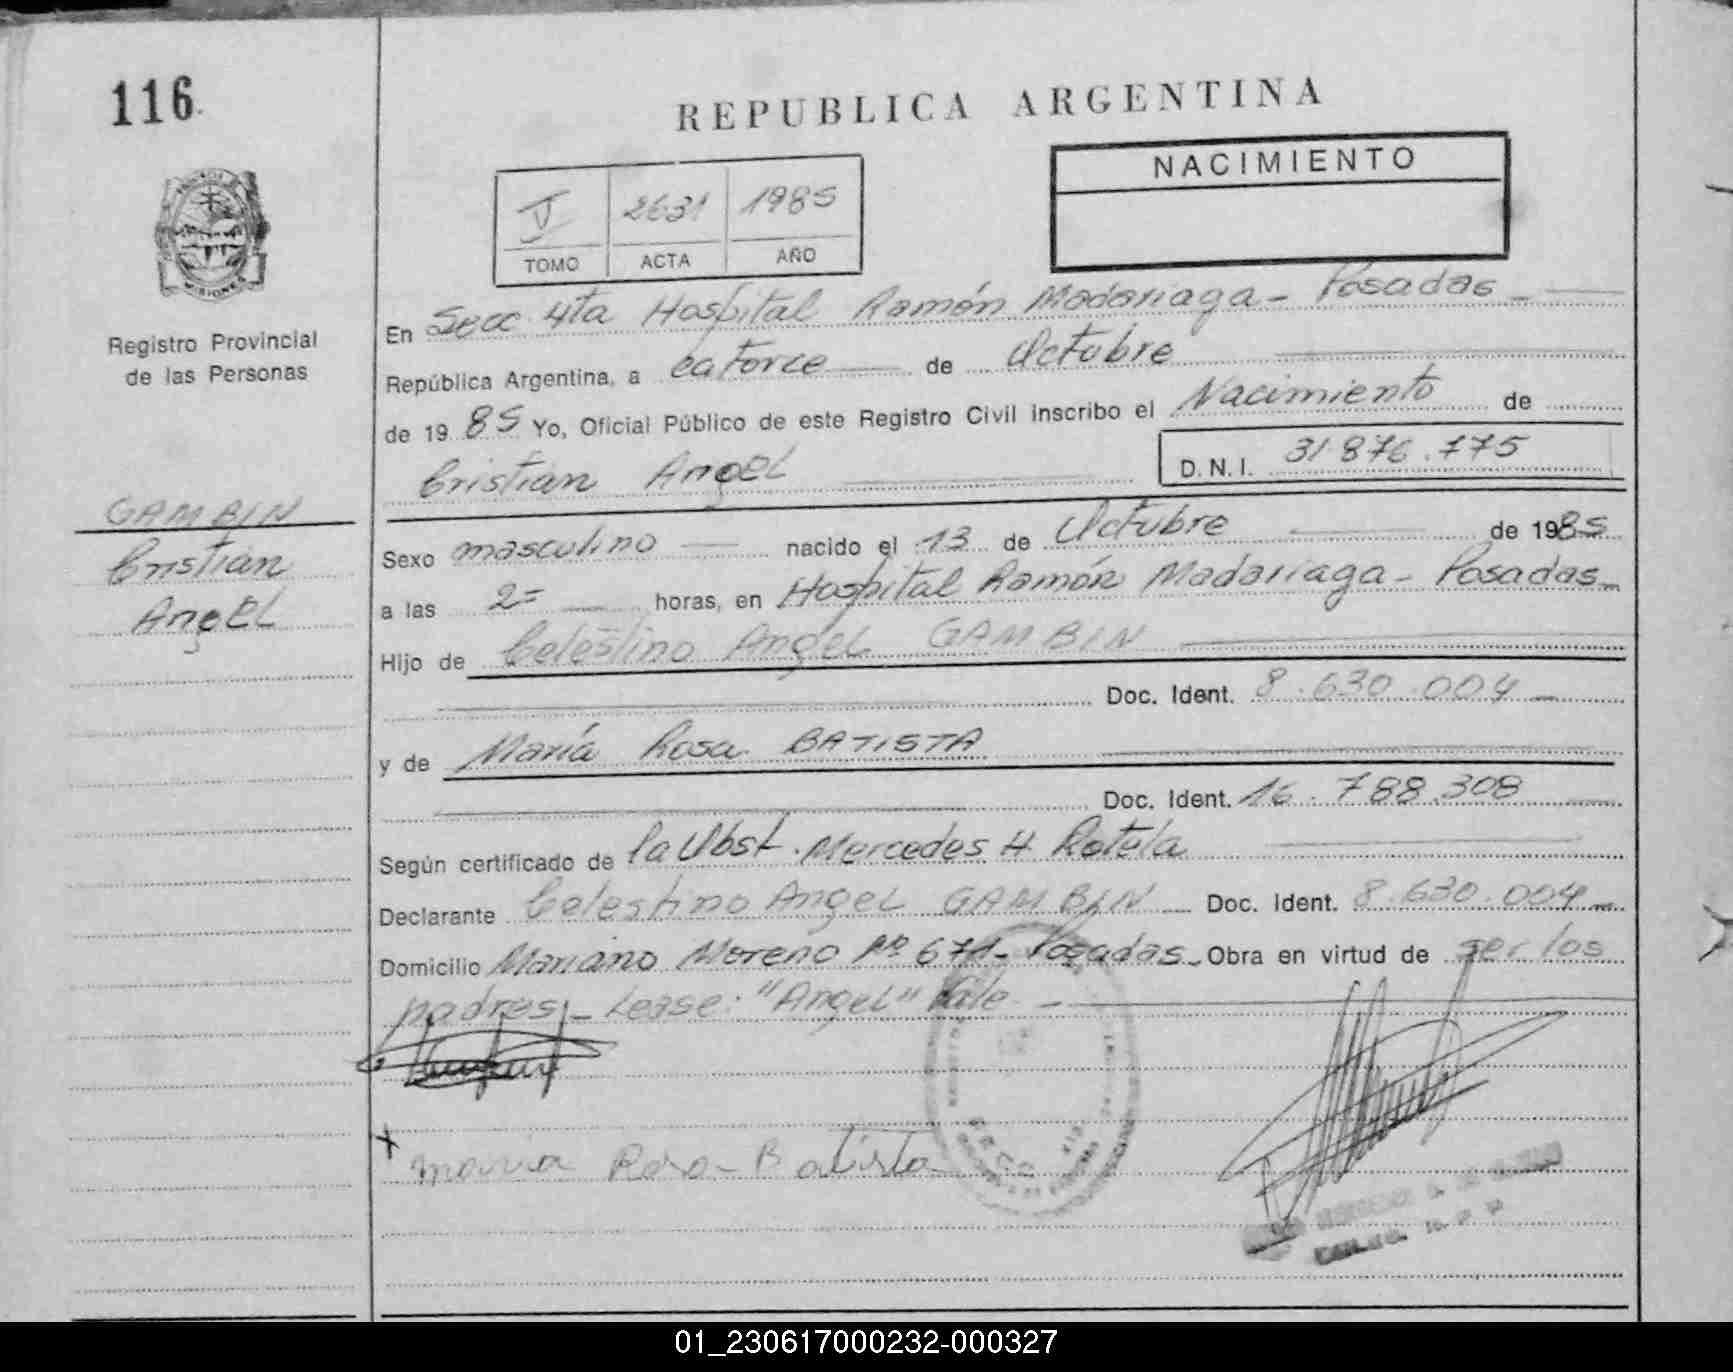 116.
REPUBLICA ARGENTINA
NACIMIENTO
V 2631 1985
TOMO ACTA AÑO
MISIONES
Registro Provincial
de las Personas
GAMBIN
Cristian
Angel
En Secc 4ta Hospital Ramón Madariaga - Posadas -
República Argentina, a catorce de Octubre
de 1985 Yo, Oficial Público de este Registro Civil inscribo el Nacimiento de
Cristian Angel D.N.I. 31.876.775
Sexo masculino nacido el 13 de Octubre de 1985
a las 2= horas, en Hospital Ramón Madariaga - Posadas -
Hijo de Celestino Angel GAMBIN
Doc. Ident. 8.630.004
y de María Rosa BATISTA
Doc. Ident. 16.788.308
Según certificado de la Obst. Mercedes H Rotela
Declarante Celestino Angel GAMBIN Doc. Ident. 8.630.004
Domicilio Mariano Moreno Nº 671 - Posadas - Obra en virtud de ser los
padres - Lease: "Angel" Vale -
maria Rosa - Batista
01_230617000232-000327